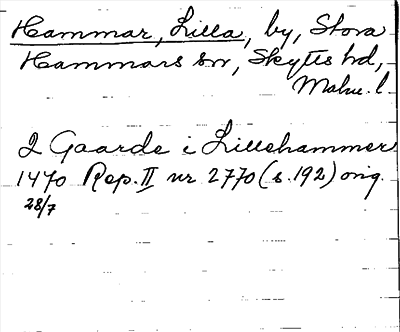 Hammar, Lilla, by, Stora
Hammars sn, Skytts hd,
Malm. l.
2 Gaarde i Lillehammer
1470 Rep. II nr 2770 (s. 192) orig.
28/7